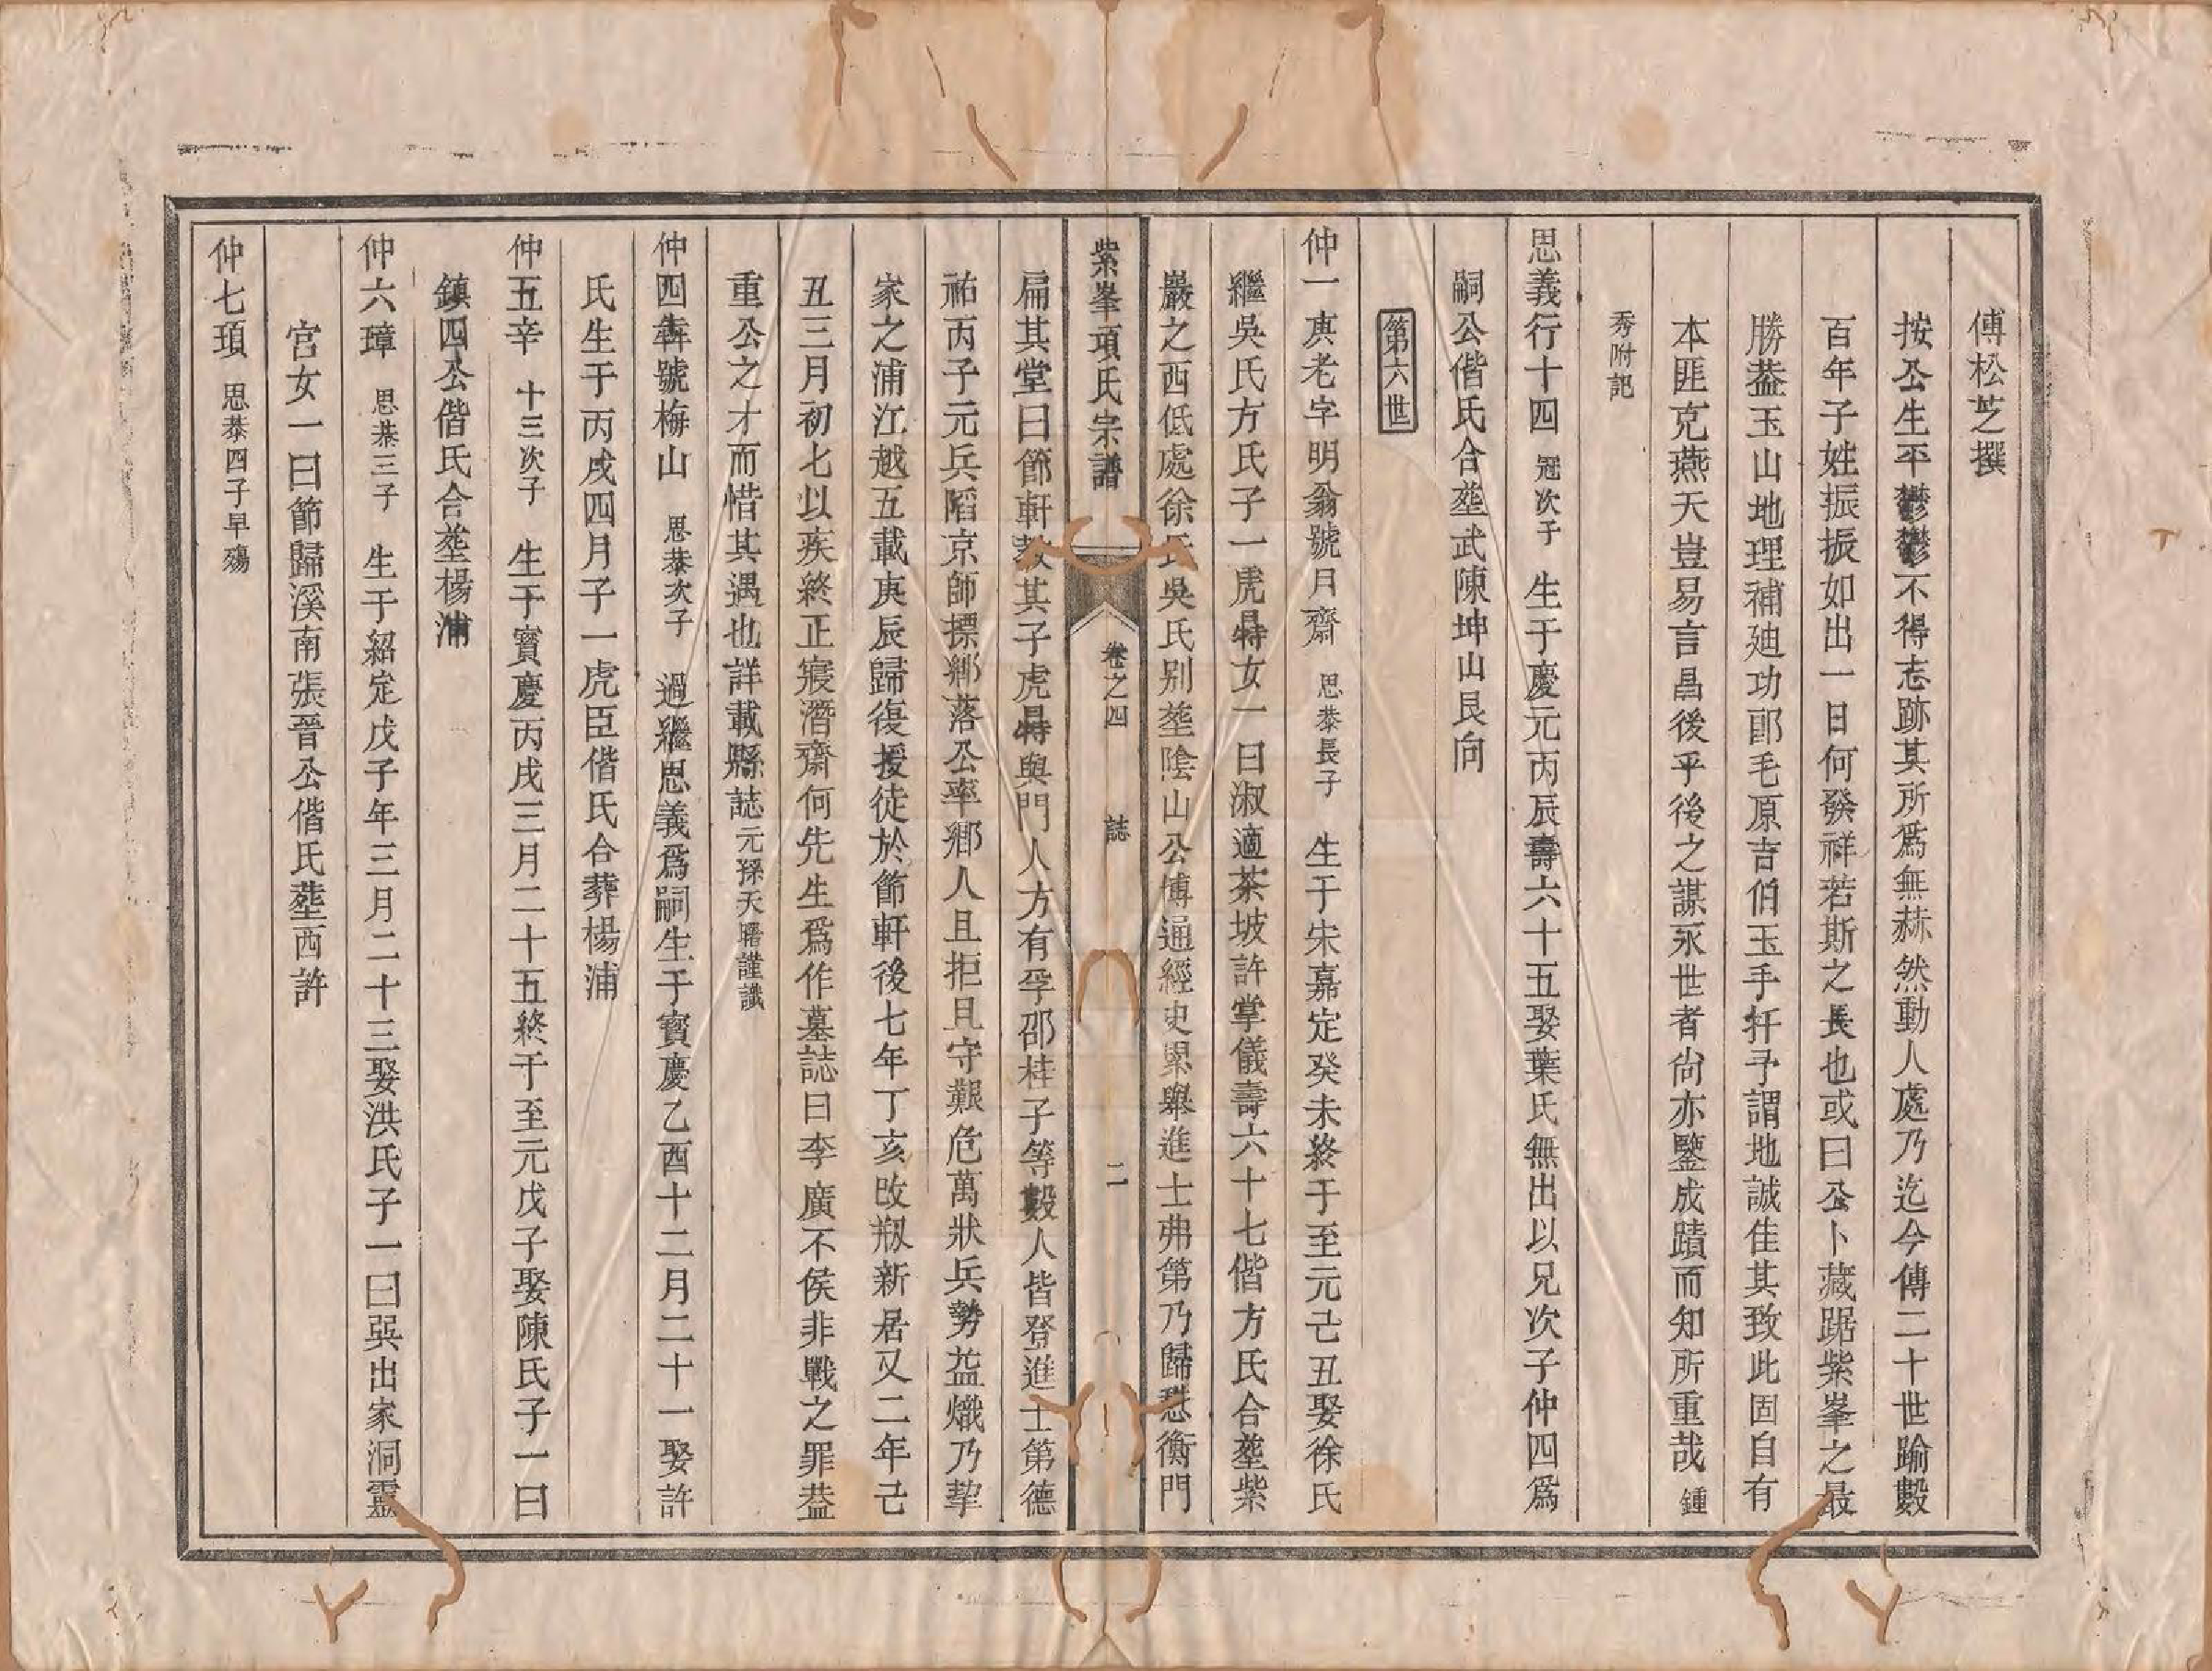 傅松芝撰
按公生平鬱鬱不得志跡其所爲無赫然動人處乃迄今傳二十世踰數
百年子姓振振如出一日何發祥若斯之長也或曰公卜藏踞紫峯之最
勝葢玉山地理補廸功郎毛原吉伯玉手扦予謂地誠佳其致此固自有
本匪克燕天豈易言昌後乎後之謀永世者尙亦鑒成蹟而知所重哉 鍾
秀附記
思義行十四 冠次子 生于慶元丙辰壽六十五娶葉氏無出以兄次子仲四爲
嗣公偕氏合塟武陳坤山艮向
第六世
仲一 老字明翁號月齋 思㳟長子 生于宋嘉定癸未終于至元己丑娶徐氏
繼吳氏方氏子一虎 女一曰淑適茶坡許掌儀壽六十七偕方氏合塟紫
巖之西低處徐氏吳氏别塟陰山公博通經史累舉進士弗第乃歸憇衡門
紫峯項氏宗譜 卷之四 誌 二
扁其堂曰節軒教其子虎 與門人方有孚邵桂子等數人皆登進士第德
祐丙子元兵䧟京師摽鄉落公率鄉人且拒且守艱危萬狀兵勢益熾乃挈
家之浦江越五載庚辰歸復授徒於節軒後七年丁亥改剏新居又二年己
丑三月初七以疾終正寢潛齋何先生爲作墓誌曰李廣不侯非戰之罪葢
重公之才而惜其遇也詳載縣誌 元孫天曙謹識
仲四 號梅山 思㳟次子 過繼思義爲嗣生于寶慶乙酉十二月二十一娶許
氏生于丙戌四月子一虎臣偕氏合葬楊浦
仲五辛 十三次子 生于寶慶丙戌三月二十五終于至元戊子娶陳氏子一曰
鎮四公偕氏合塟楊浦
仲六璋 思㳟三子 生于紹定戊子年三月二十三娶洪氏子一曰巽出家洞靈
宮女一曰節歸溪南張晉公偕氏塟西許
仲七頊 思㳟四子早殤